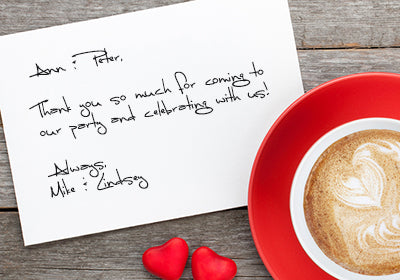 Ann : Peter,
Thank you so much for coming to
our party and celebrating with us!
Always,
Mike : Lindsey